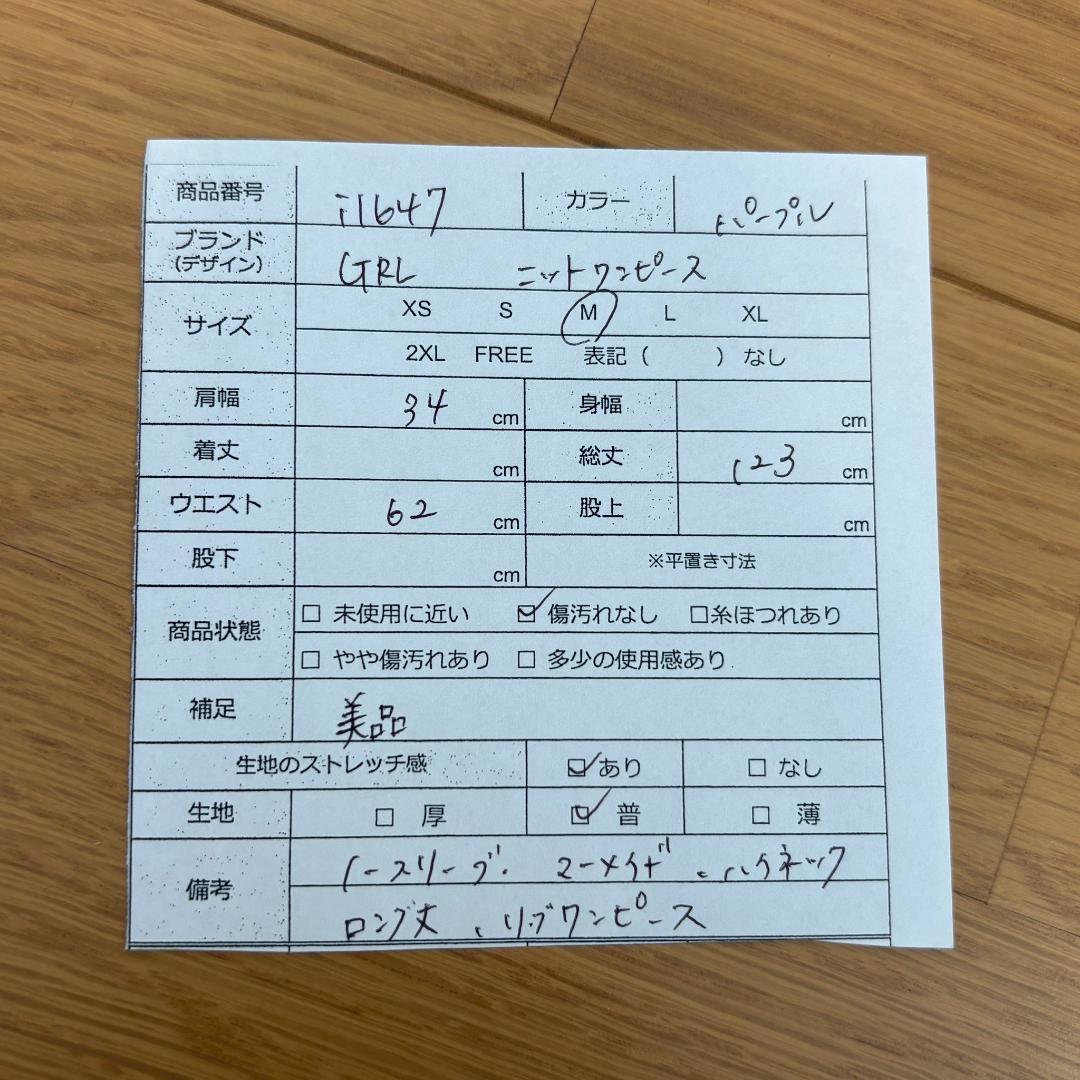 商品番号 i1647 カラー パープル
ブランド
(デザイン) GRL ニットワンピース
サイズ XS S M L XL
2XL FREE 表記 ( ) なし
肩幅 34 cm 身幅 cm
着丈 cm 総丈 123 cm
ウエスト 62 cm 股上 cm
股下 cm ※平置き寸法
商品状態 □ 未使用に近い ☑ 傷汚れなし □糸ほつれあり
□ やや傷汚れあり □ 多少の使用感あり
補足 美品
生地のストレッチ感 ☑あり □ なし
生地 □ 厚 ☑ 普 □ 薄
備考 ノースリーブ、マーメイド、ハイネック
ロング丈、リブワンピース